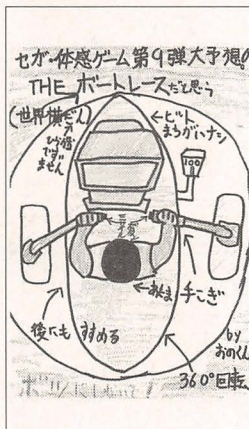 セガ・体感ゲーム第9弾大予想の
THE ボートレースだと思う
(世界横だん
ひらがなですません
←ビト
まちがハナシ
←あたま
手こぎ
後にも すすめる
360°回転
by
おのくん
ボツにしないで!